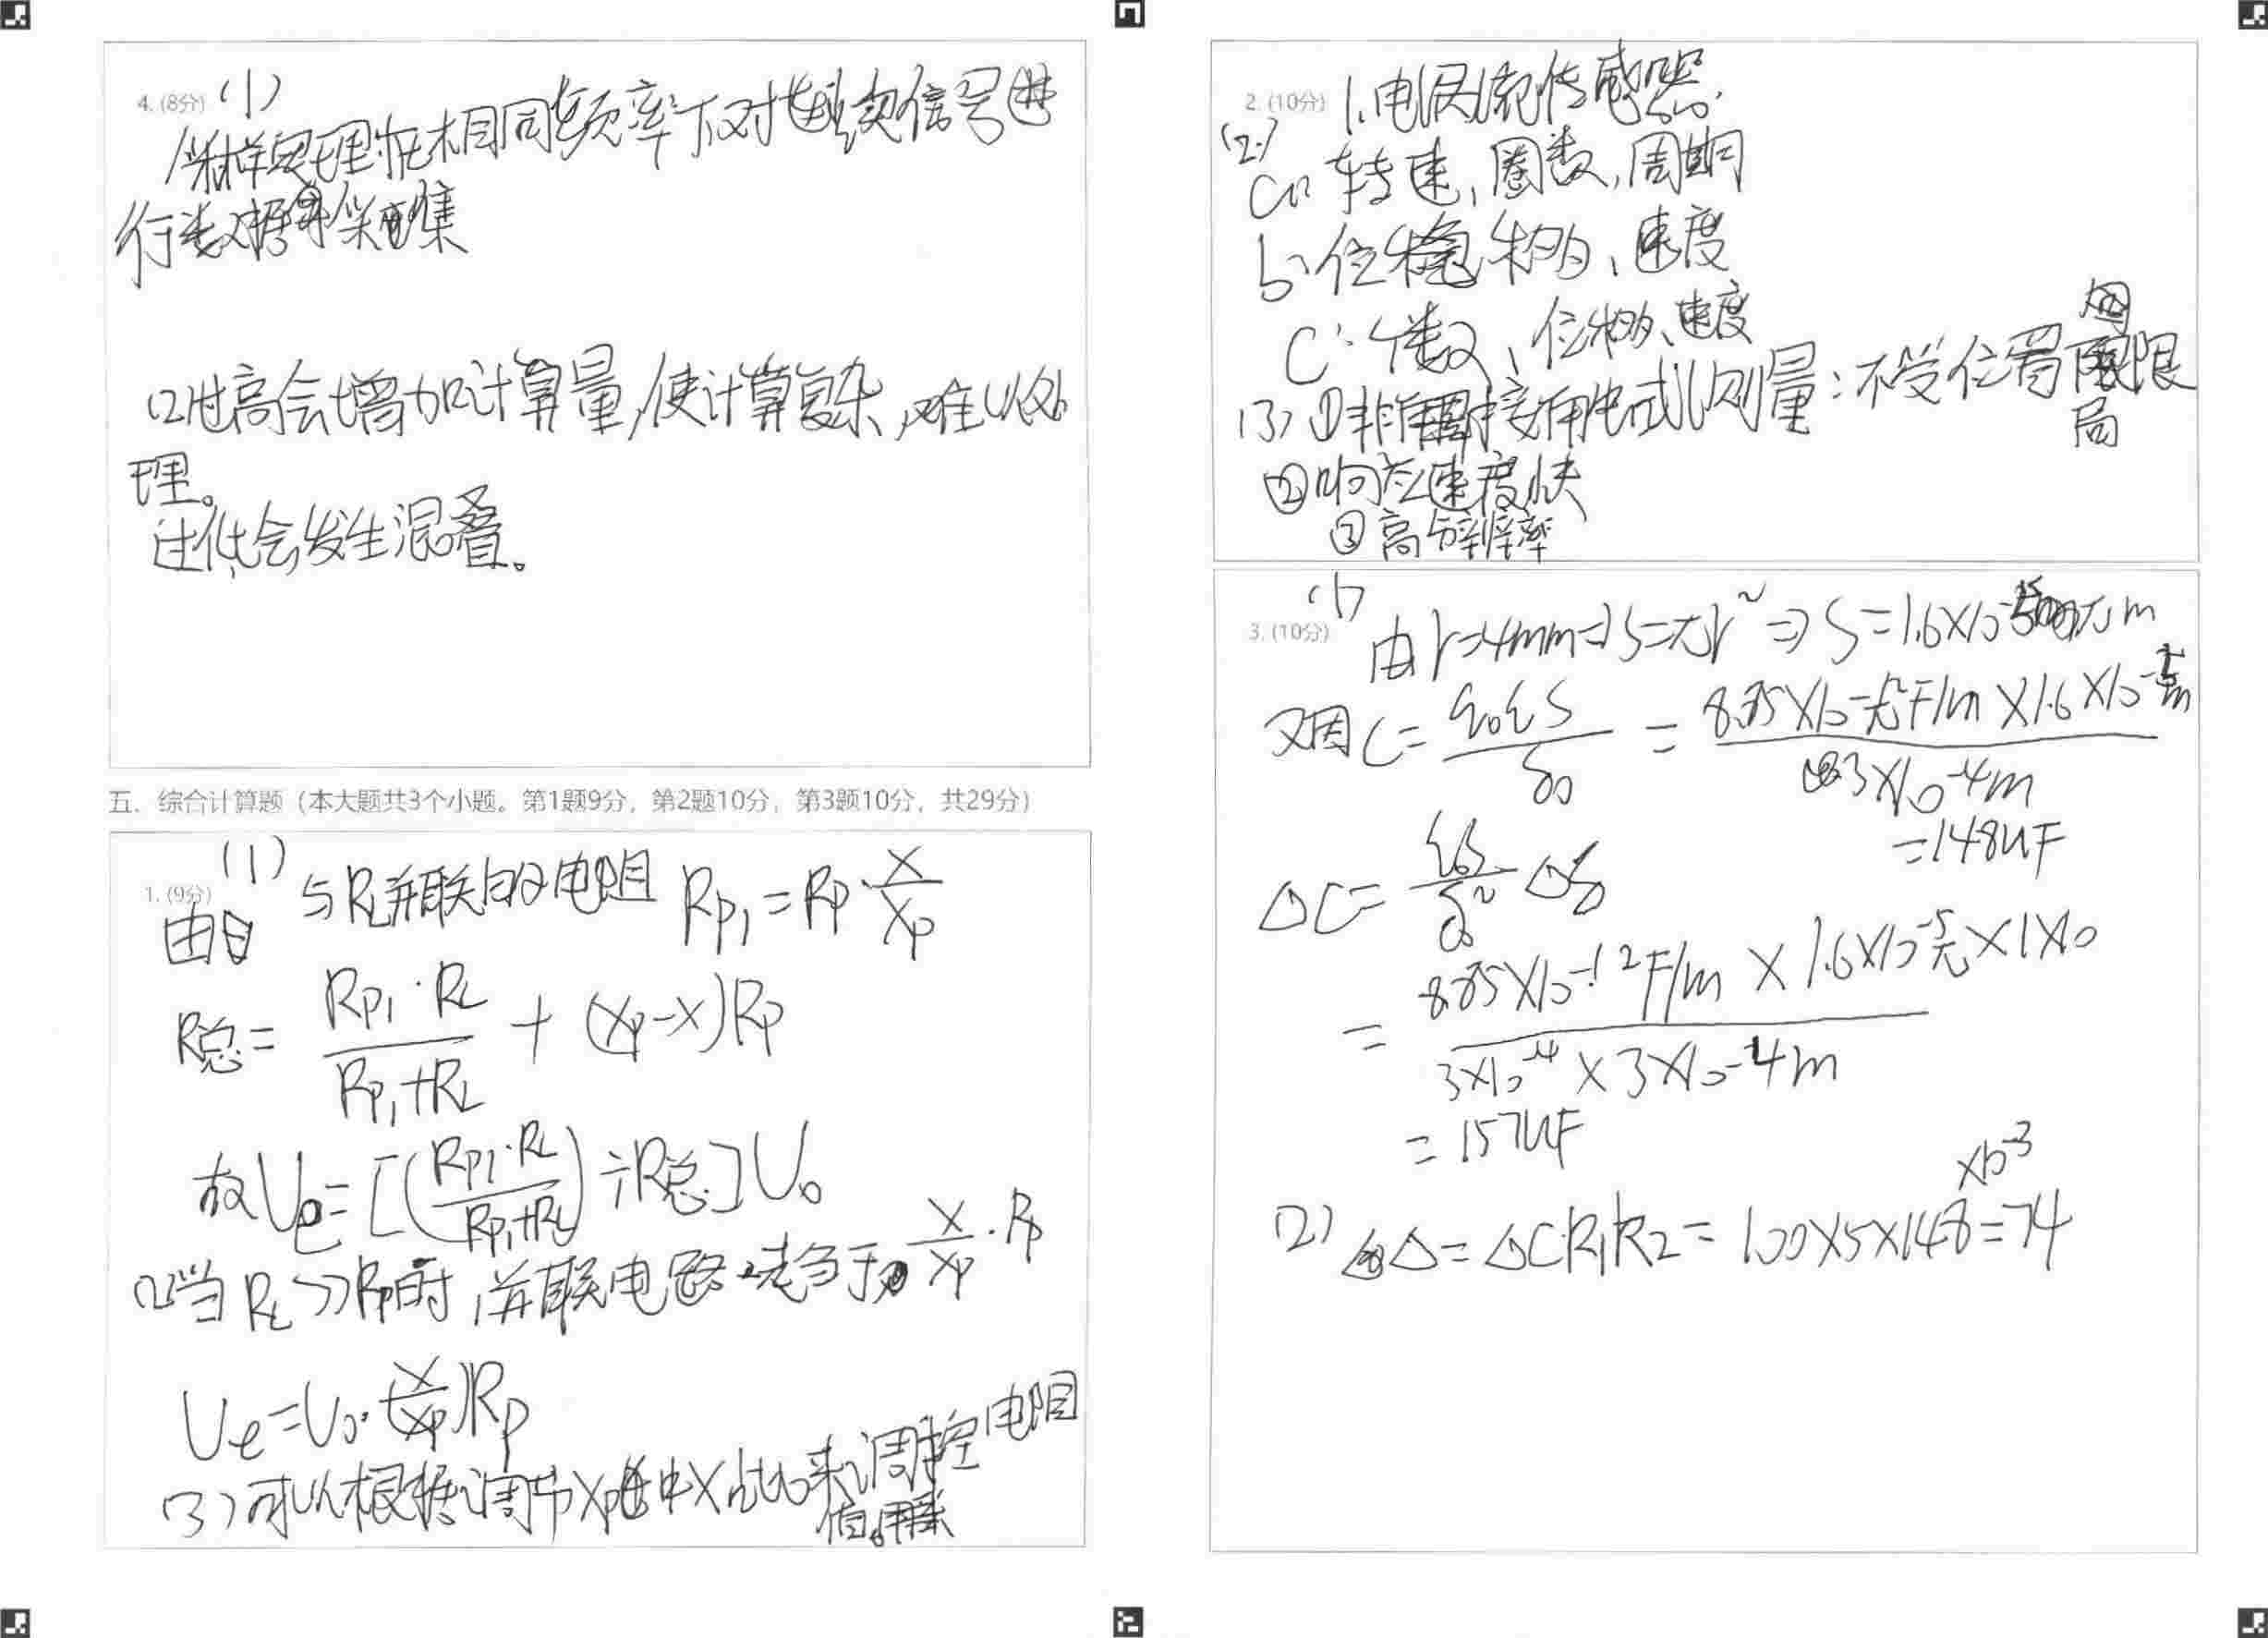 4. (8分) (1)
采样定理:在相同频率下对连续信号进
行数据采集
(2)过高会增加计算量,使计算复杂,难以处
理。
过低会发生混叠。
五、综合计算题（本大题共3个小题。第1题9分，第2题10分，第3题10分，共29分）
1. (9分) (1)
由 与RL并联的电阻 Rp1=Rp·x/xp
R总= Rp1·RL/(Rp1+RL) + (xp-x)Rp
故Ue=[(Rp1·RL/(Rp1+RL))÷R总]U0
(2)当RL>>Rp时,并联电路 于 x/xp·Rp
Ue=U0·(x/xp)Rp
(3)可以根据调节xp中x占比来调控电阻
值。
2. (10分) 1.电涡流传感器.
(2)
a: 转速、圈数,周期
b:位移、速度
C:个数、位移、速度
(3)①非接触式测量:不受位置 限
局
②响应速度快
③高分辨率
3. (10分) (1)
由r=4mm=>S=πr²=>S=1.6×10 π m
又因C= ε0εS/δ0 = 8.85×10 F/m×1.6×10 m / 3×10-4m
=148uF
ΔC= εS/δ0² Δδ
= 8.85×10-12F/m×1.6×10-5π×1×10 / 3×10-4×3×10-4m
=157uF
(2) Δ=ΔC·R1R2=100×5×148×10-3=74